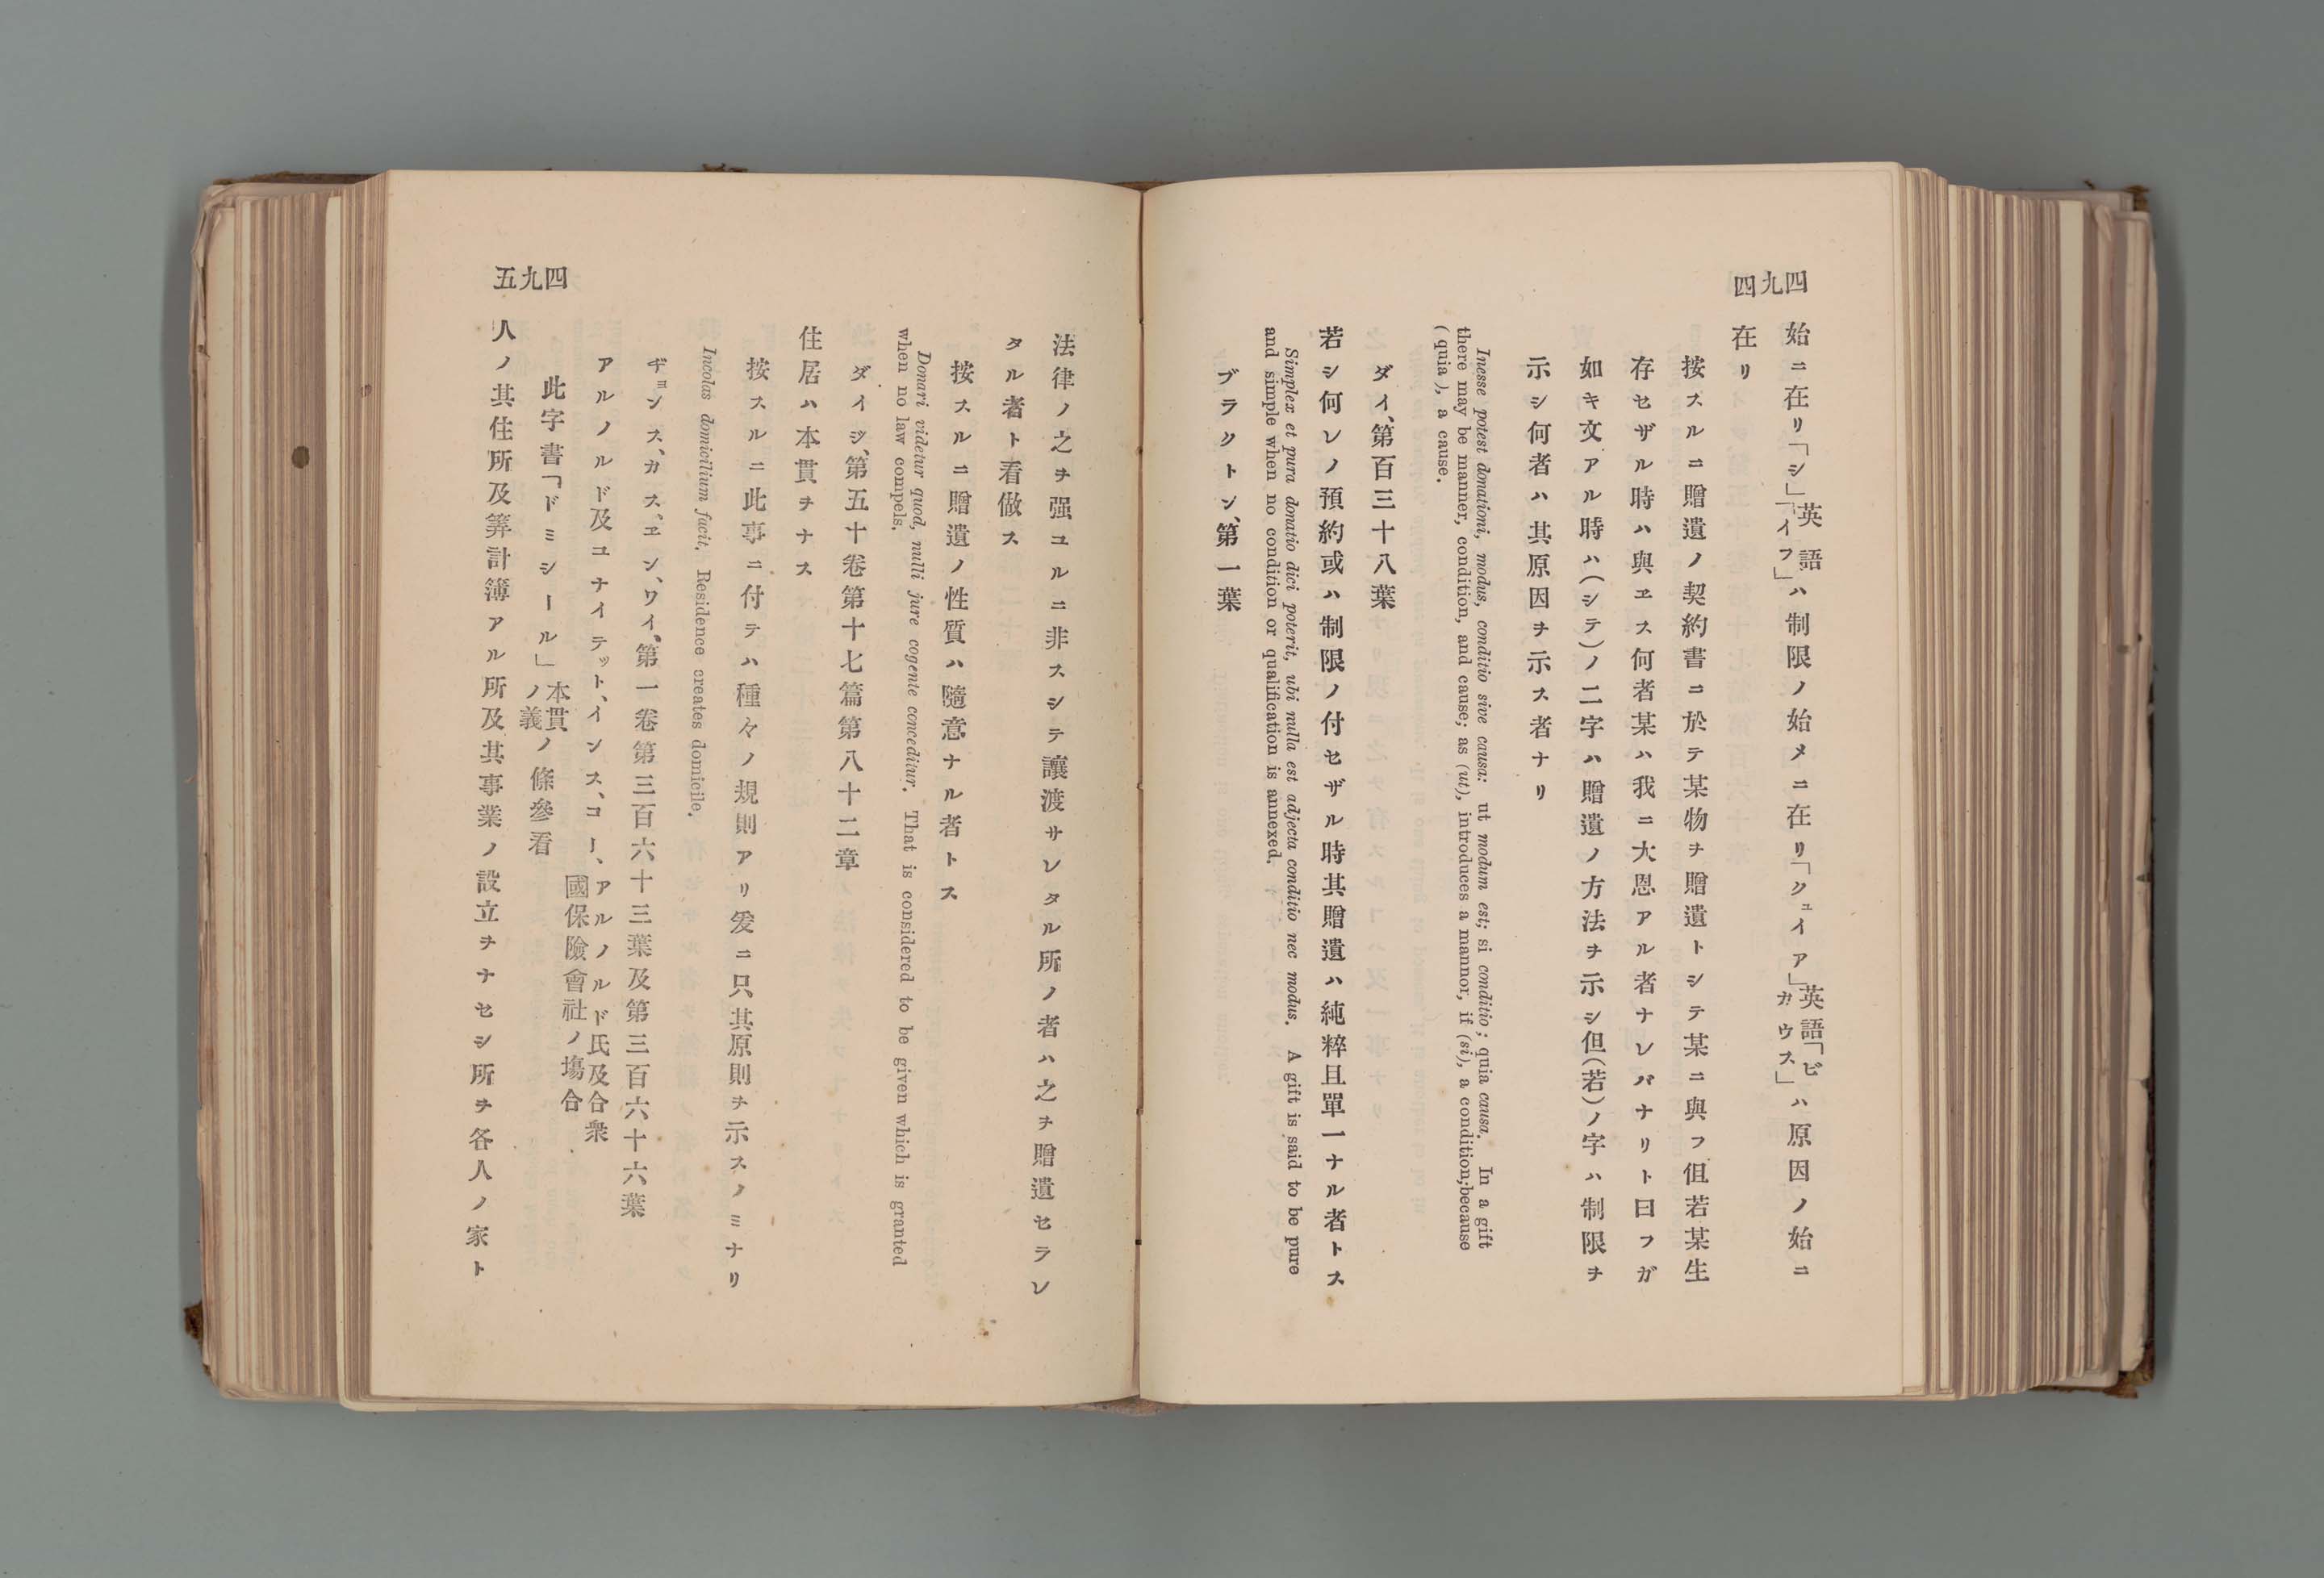 四九四
始ニ在リ「シ」英語「イフ」ハ制限ノ始メニ在リ「クュイア」英語「ビカウス」ハ原因ノ始ニ
在リ
按スルニ贈遺ノ契約書ニ於テ某物ヲ贈遺トシテ某ニ與フ伹若某生
存セザル時ハ與ヱス何者某ハ我ニ大恩アル者ナレバナリト曰フガ
如キ文アル時ハ(シテ)ノ二字ハ贈遺ノ方法ヲ示シ但(若)ノ字ハ制限ヲ
示シ何者ハ其原因ヲ示ス者ナリ
Inesse potest donationi, modus, conditio sive causa: ut modum est; si conditio; quia causa. In a gift
there may be manner, condition, and cause; as (ut), introduces a mannor, if (si), a condition;because
(quia), a cause.
ダイ、第百三十八葉
若シ何レノ預約或ハ制限ノ付セザル時其贈遺ハ純粹且單一ナル者トス
Simplex et pura donatio dici poterit, ubi nulla est adjecta conditio nec modus. A gift is said to be pure
and simple when no condition or qualification is annexed.
ブラクトン、第一葉
四九五
法律ノ之ヲ强ユルニ非スシテ讓渡サレタル所ノ者ハ之ヲ贈遺セラレ
タル者ト看做ス
按スルニ贈遺ノ性質ハ隨意ナル者トス
Donari videtur quod, nulli jure cogente conceditur. That is considered to be given which is granted
when no law compels.
ダイジ、第五十卷第十七篇第八十二章
住居ハ本貫ヲナス
按スルニ此事ニ付テハ種々ノ規則アリ爰ニ只其原則ヲ示スノミナリ
Incolas domicilium facit. Residence creates domicile.
ヂョンス、カス、ヱン、ワイ、第一卷第三百六十三葉及第三百六十六葉
アルノルド及ユナイテット、インス、コー、アルノルド氏及合衆國保險會社ノ塲合
此字書「ドミシール」本貫ノ義ノ條參看
人ノ其住所及筭計簿アル所及其事業ノ設立ヲナセシ所ヲ各人ノ家ト